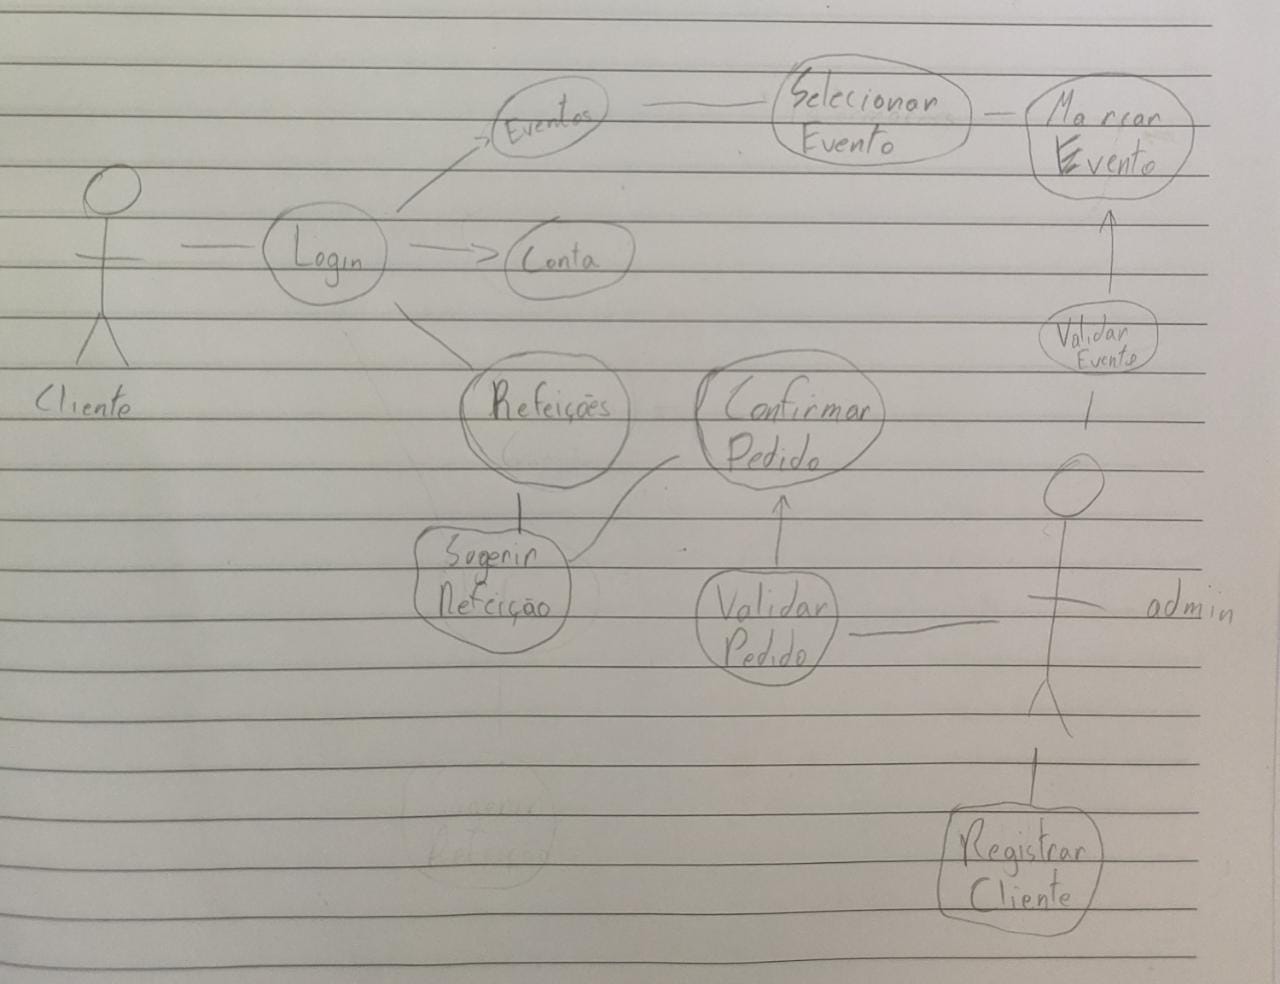 Eventos
Selecionar
Evento
Marcar
Evento
Login
Conta
Validar
Evento
Cliente
Refeições
Confirmar
Pedido
Sugerir
Refeição
Validar
Pedido
admin
Sugerir
Refeição
Registrar
Cliente